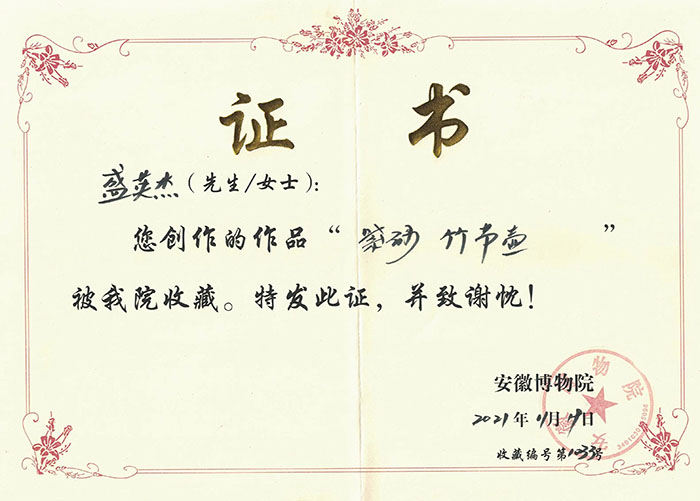 证书
盛英杰（先生/女士）：
您创作的作品“紫砂 竹节壶”
被我院收藏。特发此证，并致谢忱！
安徽博物院
2021年11月 日
收藏编号第1033号
安徽博物院